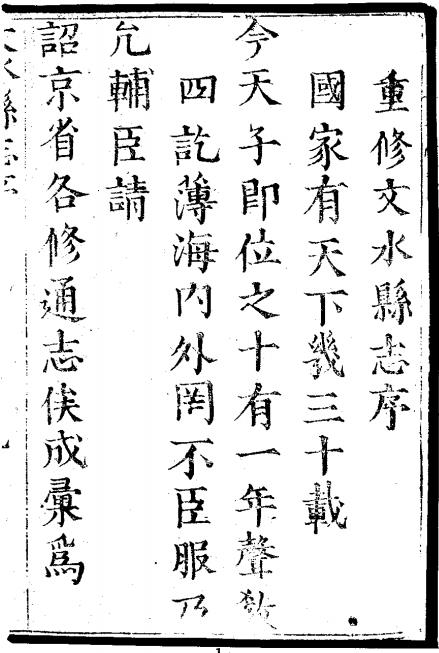 重修文水縣志序
國家有天下幾三十載
今天子即位之十有一年聲教
四訖薄海內外罔不臣服乃
允輔臣請
詔京省各修通志俟成彙爲